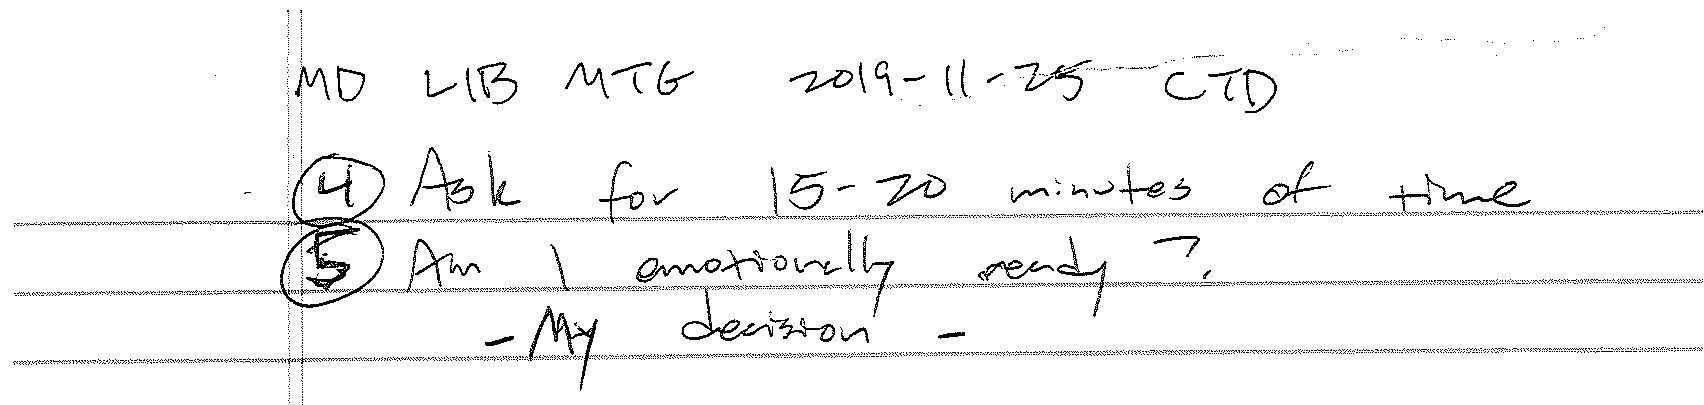 MD LIB MTG 2019-11-25 CTD
4 Ask for 15-20 minutes of time
5 Am I emotionally ready?
- My decision -